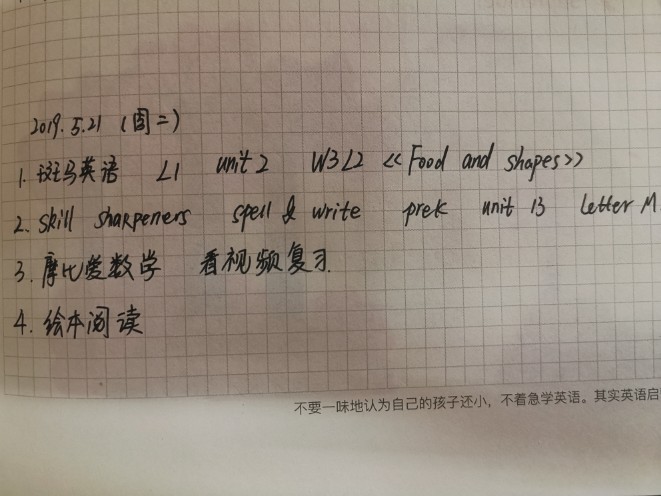 2019.5.21 (周二)
1. 斑马英语 L1 unit 2 W3L2 《Food and shapes》
2. skill sharpeners spell & write prek unit 13 letter M
3. 摩比爱数学 看视频复习.
4. 绘本阅读
不要一味地认为自己的孩子还小，不着急学英语。其实英语启